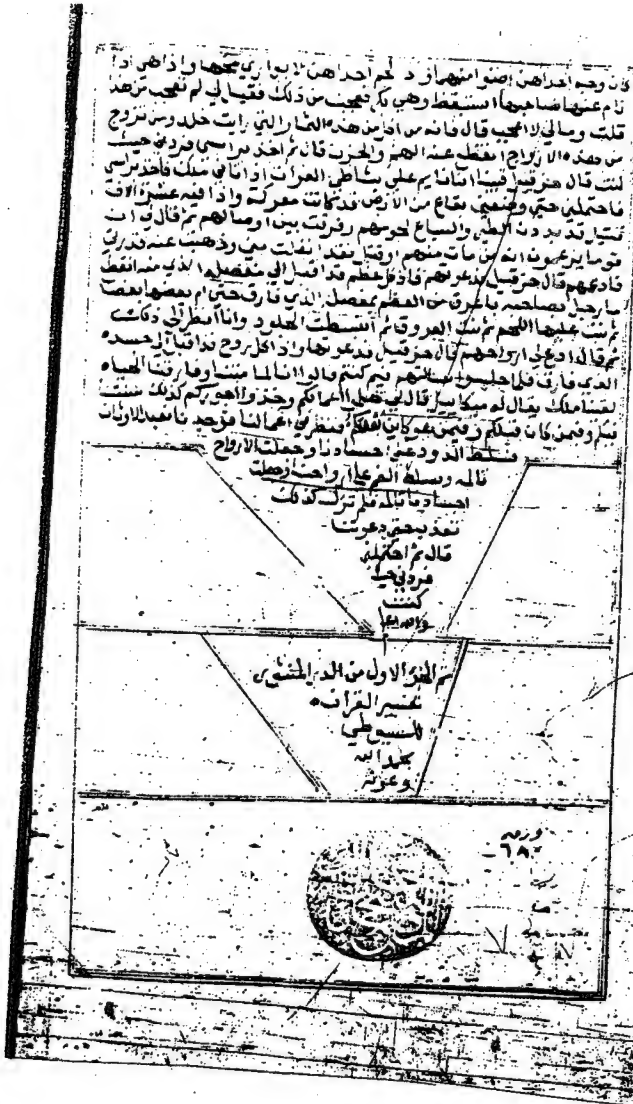 كان وجه احداهن اضوا منهما و د لحم احداهن لا يواري مخها واذا هي اذا
نام عنها صاحبها استيقظ وهي بكر فعجبت من ذلك فقيل لي لم تعجب من هذا
قلت ومالي لا اعجب قال فانه من اكل من هذه الثمار التي رايت خلد ومن تزوج
من هذه الازواج انقطع عنه الهم والحزن قال ثم اخذ براسي فردني حيث
كنت قال حزقيل فبينا انا نايم على شاطي الفرات اذ اتاني ملك فاخذ براسي
فاحتملني حتى وضعني بقاع من الارض قد كانت معركة واذا فيه عشرة الاف
قتيل قد بددت الطير والسباع لحومهم وفرقت بين اوصالهم ثم قال لي ان
قوما يزعمون انه من مات منهم او قتل فقد انفلت مني وذهبت عنه قدرتي
فادعهم قال حزقيل فدعوتهم فاذا كل عظم قد اقبل الى مفصله الذي منه انقطع
ما رجل بصاحبه باعرف من العظم بمفصله الذي فارق حتى ام بعضها بعضا
ثم نبت عليها اللحم ثم نبت العروق ثم انبسطت الجلود وانا انظر الى ذلك
ثم قال ادع لي ارواحهم قال حزقيل فدعوتها واذا كل روح قد اقبل الى جسده
الذي فارق فلما جلسوا سالتهم فيم كنتم قالوا انا لما متنا وفارقنا الحياة
لقينا ملك يقال له ميكاييل قال لي هلموا اعمالكم وخذوا اجوركم كذلك سنتنا
فيكم وفيمن كان قبلكم وفيمن هو كاين بعدكم فنظر في اعمالنا فوجدنا نعبد الاوثان
فسلط الدود على اجسادنا وجعلت الارواح
تالمه وسلط الغم على ارواحنا وجعلت
اجسادنا تالمه فلم نزل كذلك
نعذب حتى دعوتنا
قال ثم احتملني
فردني حيث
كنت
والله اعلم
تم الجزء الاول من الدر المنثور في
تفسير القران
للسيوطي
بحمد الله
وعونه
ورقه
٦٨٠